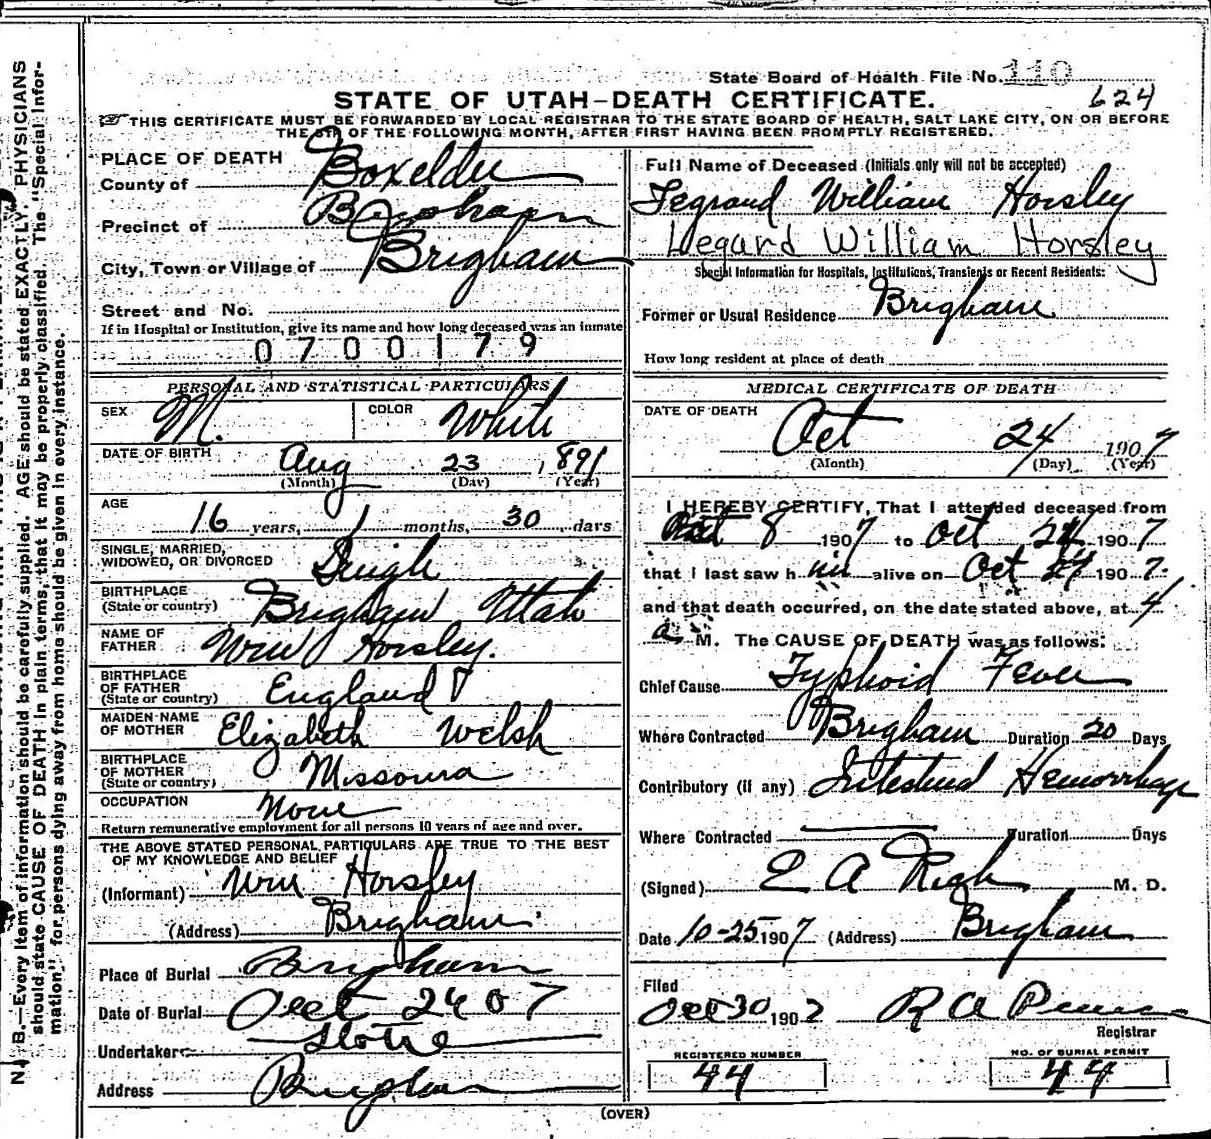 State Board of Health File No. 110
624
STATE OF UTAH—DEATH CERTIFICATE.
THIS CERTIFICATE MUST BE FORWARDED BY LOCAL REGISTRAR TO THE STATE BOARD OF HEALTH, SALT LAKE CITY, ON OR BEFORE
THE 5TH OF THE FOLLOWING MONTH, AFTER FIRST HAVING BEEN PROMPTLY REGISTERED.
PLACE OF DEATH
County of Boxelder
Precinct of Brigham
City, Town or Village of Brigham
Street and No.
If in Hospital or Institution, give its name and how long deceased was an inmate
0700179
PERSONAL AND STATISTICAL PARTICULARS
SEX M. COLOR White
DATE OF BIRTH Aug 23, 1891
(Month) (Day) (Year)
AGE 16 years, 1 months, 30 days
SINGLE, MARRIED,
WIDOWED, OR DIVORCED Single
BIRTHPLACE
(State or country) Brigham Utah
NAME OF
FATHER Wm Horsley.
BIRTHPLACE
OF FATHER
(State or country) England
MAIDEN NAME
OF MOTHER Elizabeth Welsh
BIRTHPLACE
OF MOTHER
(State or country) Missoura
OCCUPATION None
Return remunerative employment for all persons 10 years of age and over.
THE ABOVE STATED PERSONAL PARTICULARS ARE TRUE TO THE BEST
OF MY KNOWLEDGE AND BELIEF
(Informant) Wm Horsley
(Address) Brigham
Place of Burial Brigham
Date of Burial Oct 26 07
Undertaker
Address Brigham
Full Name of Deceased (Initials only will not be accepted)
Legrand William Horsley
Legard William Horsley
Special Information for Hospitals, Institutions, Transients or Recent Residents:
Former or Usual Residence Brigham
How long resident at place of death
MEDICAL CERTIFICATE OF DEATH
DATE OF DEATH Oct 24 1907
(Month) (Day) (Year)
I HEREBY CERTIFY, That I attended deceased from
Oct 8 1907 to Oct 24 1907
that I last saw him alive on Oct 24 1907.
and that death occurred, on the date stated above, at 4
a M. The CAUSE OF DEATH was as follows:
Chief Cause Typhoid Fever
Where Contracted Brigham Duration 20 Days
Contributory (if any) Intestinal Hemorrhage
Where Contracted Duration Days
(Signed) E A Rich M. D.
Date 10-25 1907 (Address) Brigham
Filed
Oct 30 1907 R A
Registrar
REGISTERED NUMBER
44
NO. OF BURIAL PERMIT
44
(OVER)
N. B.—Every item of information should be carefully supplied. AGE should be stated EXACTLY. PHYSICIANS
should state CAUSE OF DEATH in plain terms, that it may be properly classified. The "Special Infor-
mation" for persons dying away from home should be given in every instance.